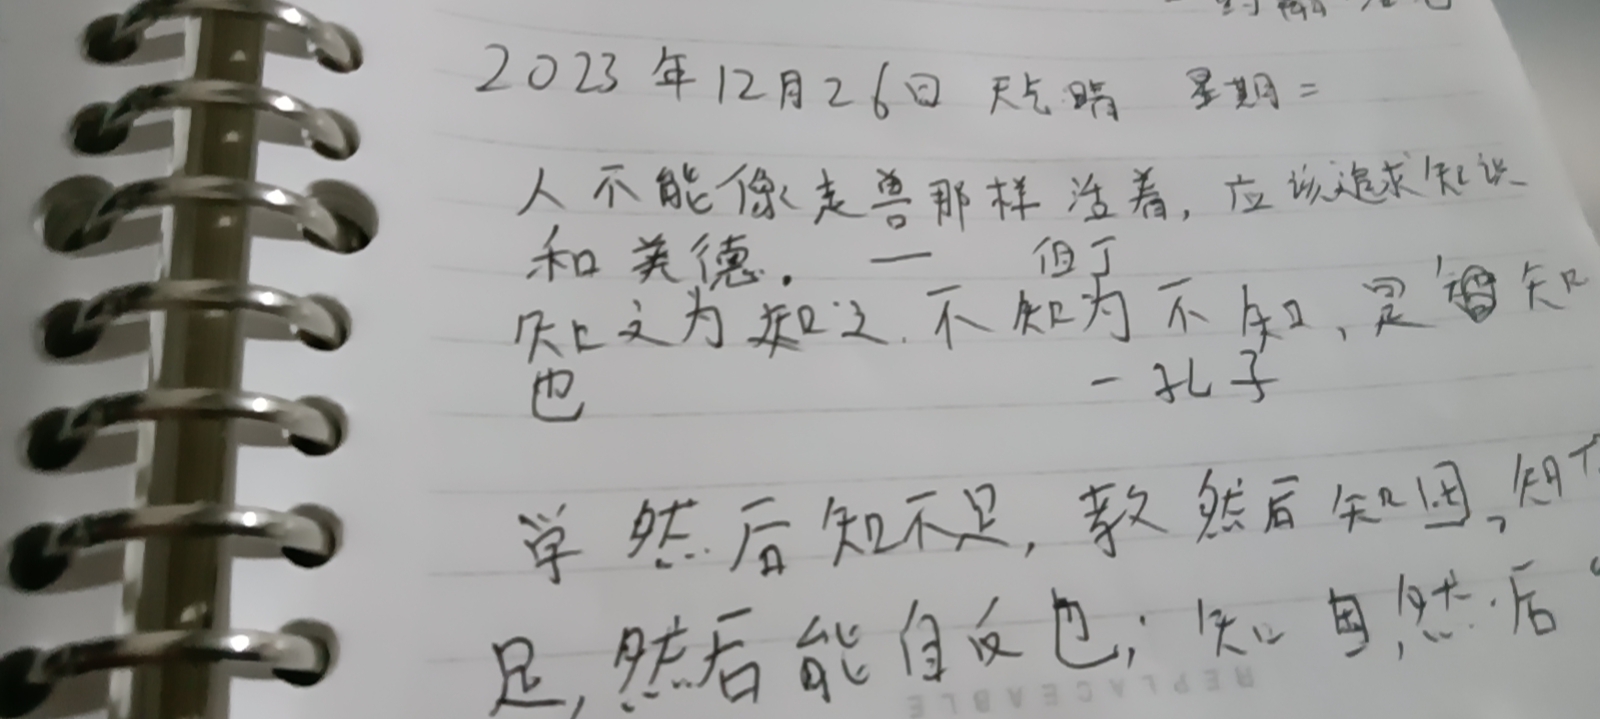 2023年12月26日 天气晴 星期二
人不能像走兽那样活着,应该追求知识
和美德. — 但丁
知之为知之.不知为不知,是知
也 -孔子
学然后知不足,教然后知困,知不
足,然后能自反也;知困,然后
REPLACEABLE